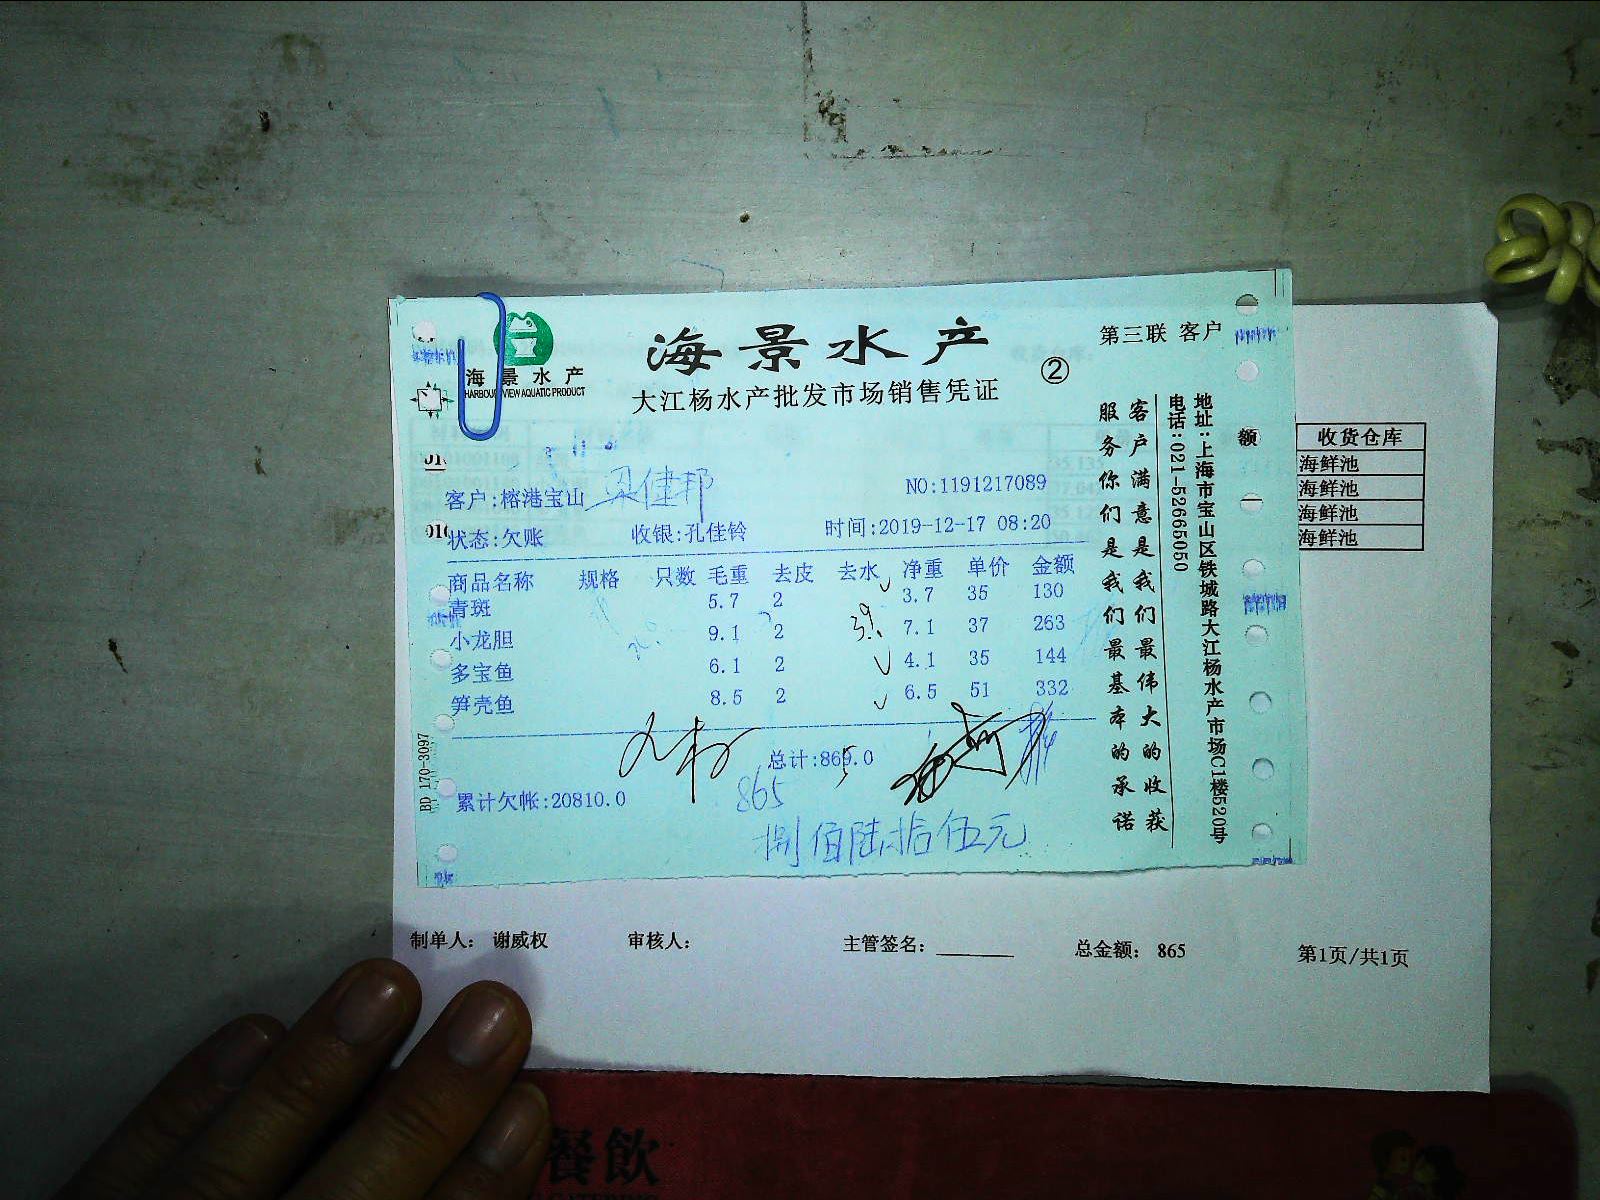 海景水产
HARBOUR VIEW AQUATIC PRODUCT
海景水产
大江杨水产批发市场销售凭证
②
第三联 客户
客户:榕港宝山 梁健邦
NO:1191217089
状态:欠账 收银:孔佳铃 时间:2019-12-17 08:20
商品名称 规格 只数 毛重 去皮 去水 净重 单价 金额
青斑 5.7 2 3.7 35 130
小龙胆 9.1 2 7.1 37 263
多宝鱼 6.1 2 4.1 35 144
笋壳鱼 8.5 2 6.5 51 332
总计:869.0
865
累计欠帐:20810.0
捌佰陆拾伍元
BD 170-3097
客户满意是我们最伟大的收获
服务你们是我们最基本的承诺
地址:上海市宝山区铁城路大江杨水产市场C1楼520号
电话:021-52665050
额
收货仓库
海鲜池
海鲜池
海鲜池
海鲜池
制单人: 谢威权 审核人: 主管签名: 总金额: 865 第1页/共1页
餐飲